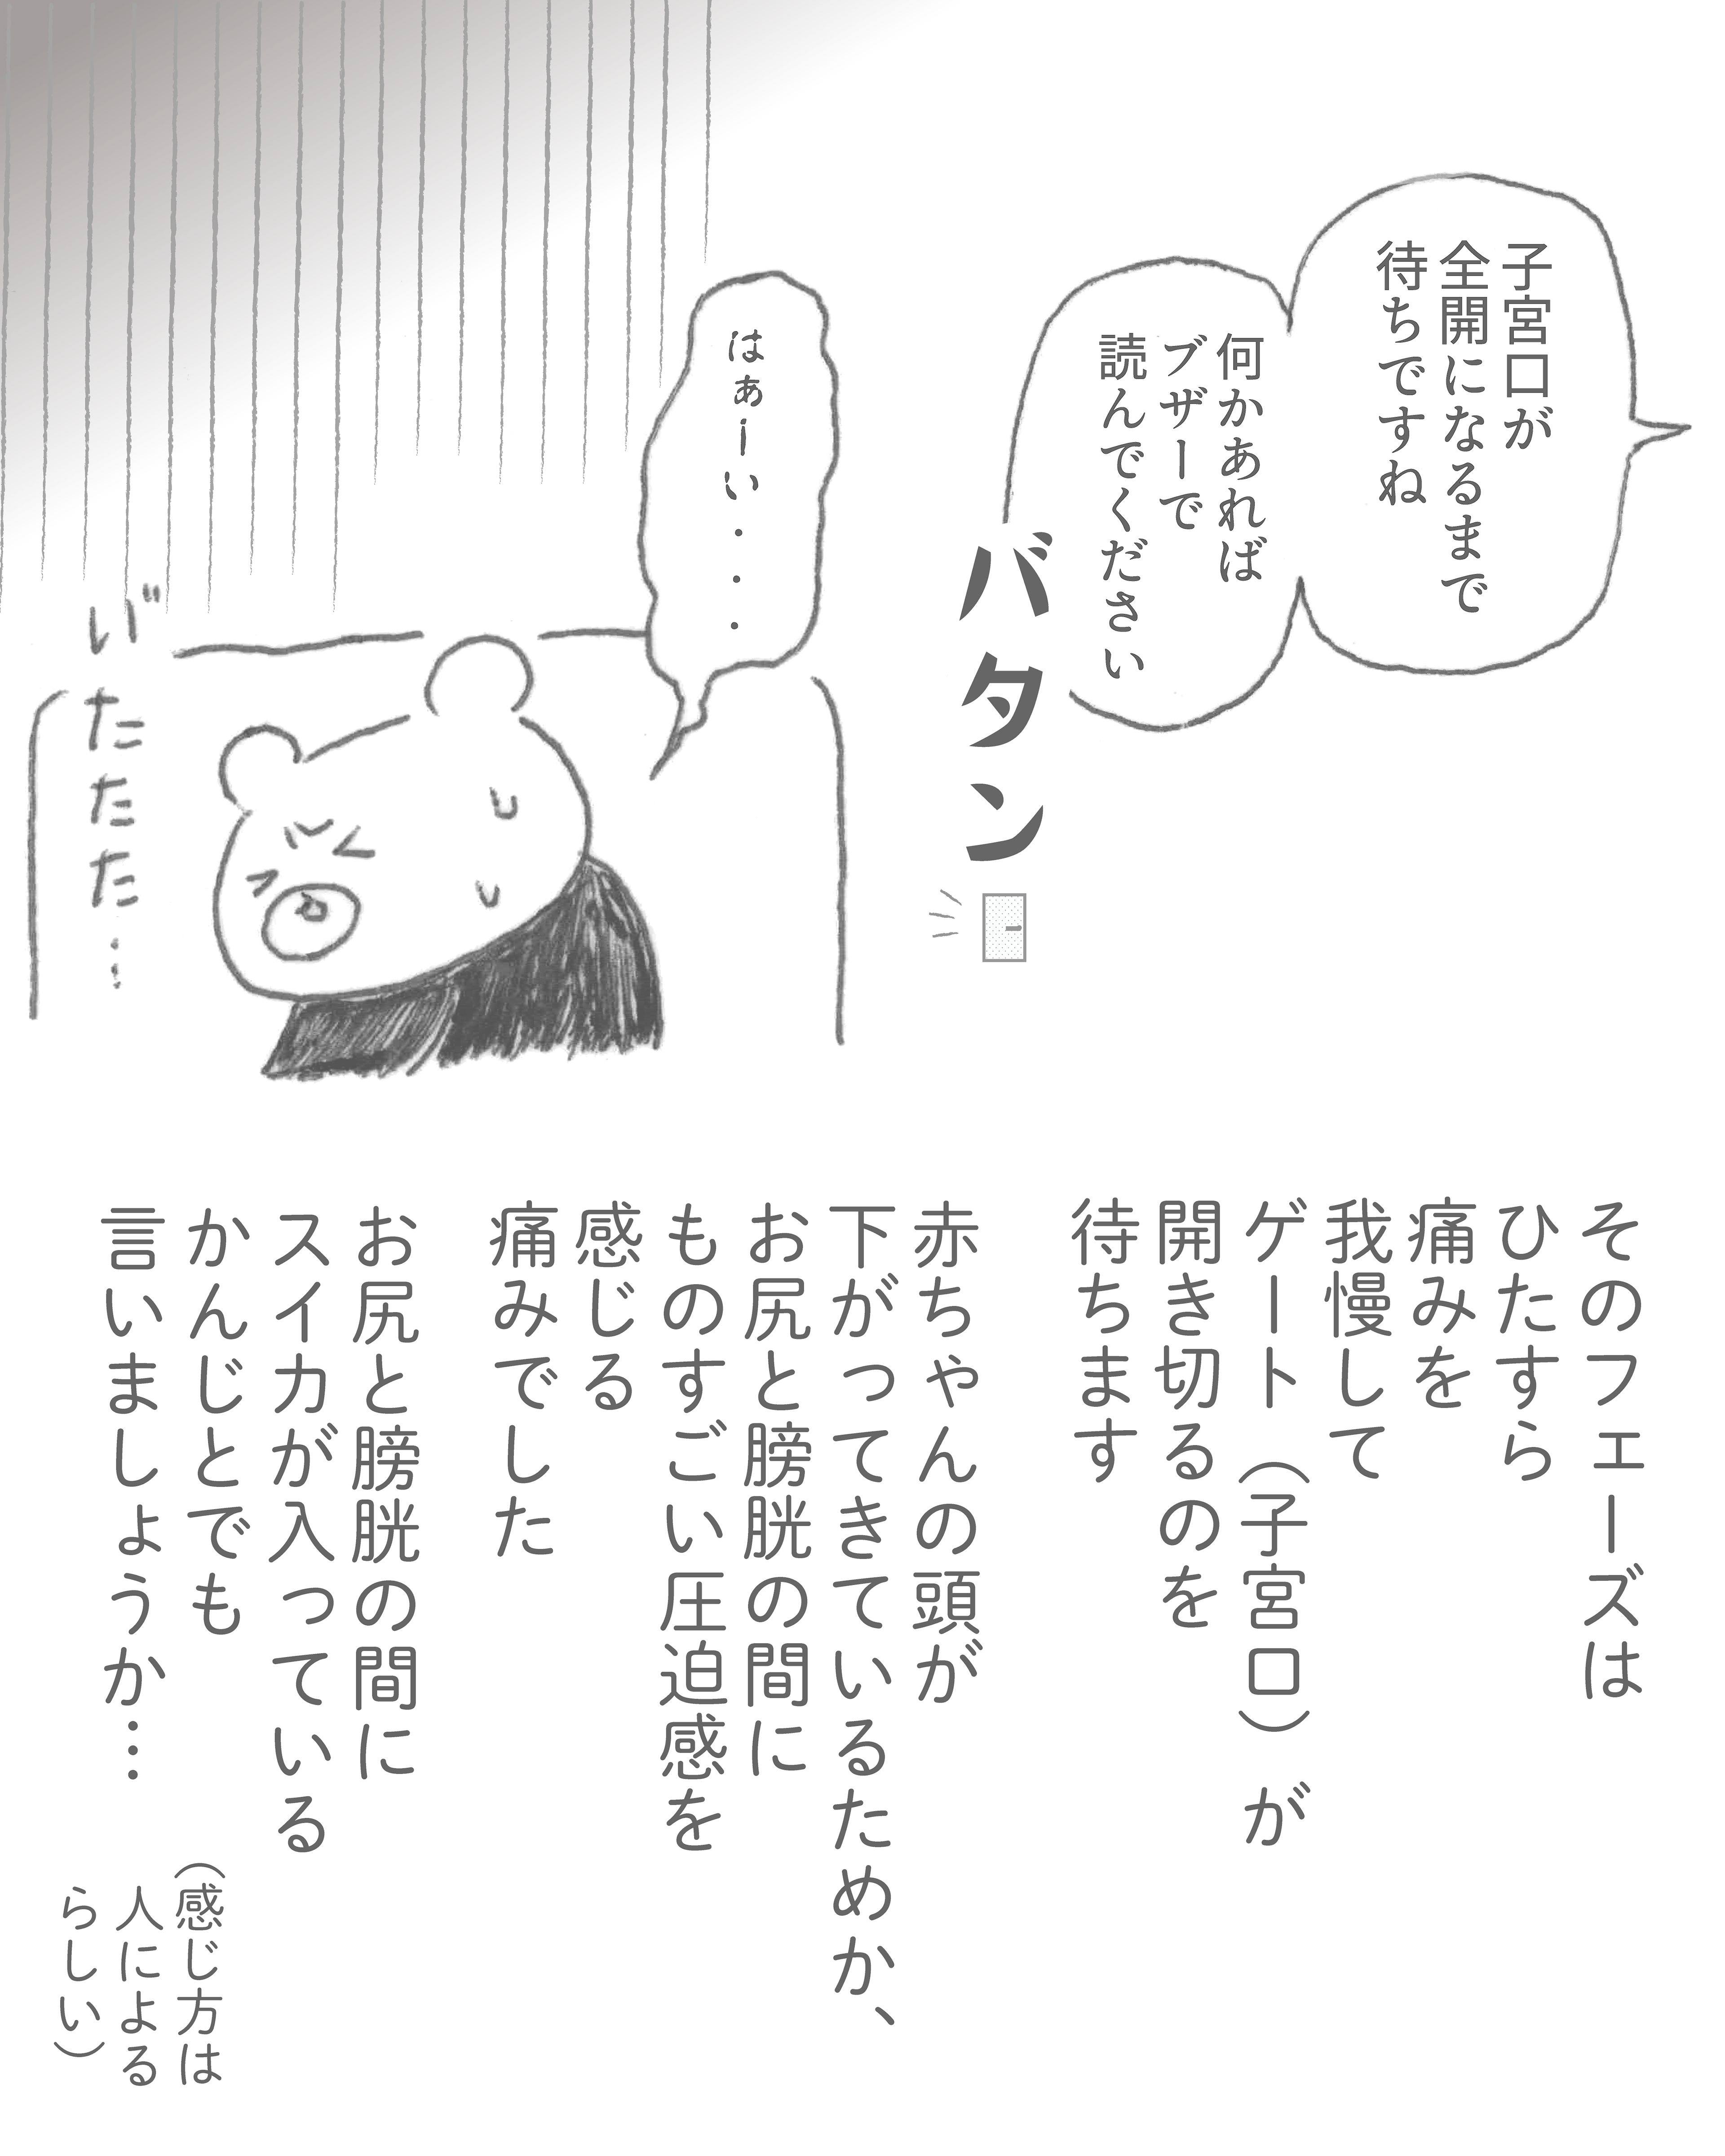 子宮口が
全開になるまで
待ちですね
何かあれば
ブザーで
読んでください
バタン
はぁーい・・・
い゛たたた…
そのフェーズは
ひたすら
痛みを
我慢して
ゲート（子宮口）が
開き切るのを
待ちます
赤ちゃんの頭が
下がってきているためか、
お尻と膀胱の間に
ものすごい圧迫感を
感じる
痛みでした
お尻と膀胱の間に
スイカが入っている
かんじとでも
言いましょうか…
（感じ方は
人による
らしい）